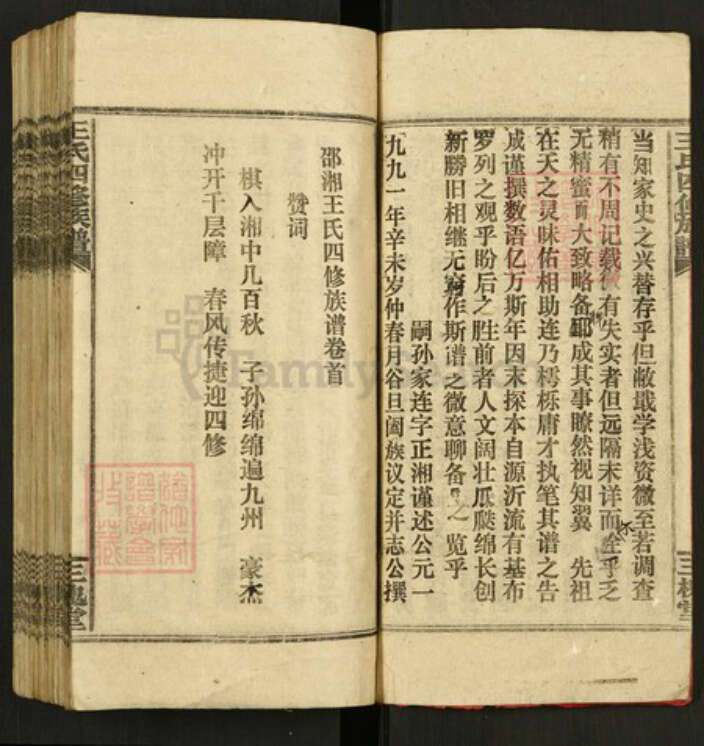 王氏四修族谱
三槐堂
当知家史之兴替存乎但敝戢学浅资微至若调查
稍有不周记载 有失实者但远隔未详而 乎乏
无精蜜而大致略备 成其事瞭然视知翼 先祖
在天之灵昧佑相助连乃樗栎庸才执笔其谱之告
成谨撰数语亿万斯年因末探本自源沂流有基布
罗列之观乎盼后之胜前者人文阔壮瓜瓞绵长创
新勝旧相继无穷作斯谱之微意聊备 一览乎
嗣孙家连字正湘谨述公元一
九九一年辛未岁仲春月谷旦阖族议定并志公撰
邵湘王氏四修族谱卷首
赞词
棋入湘中几百秋 子孙绵绵遍九州 豪杰
冲开千层障 春风传捷迎四修
王氏四修族谱
三槐堂